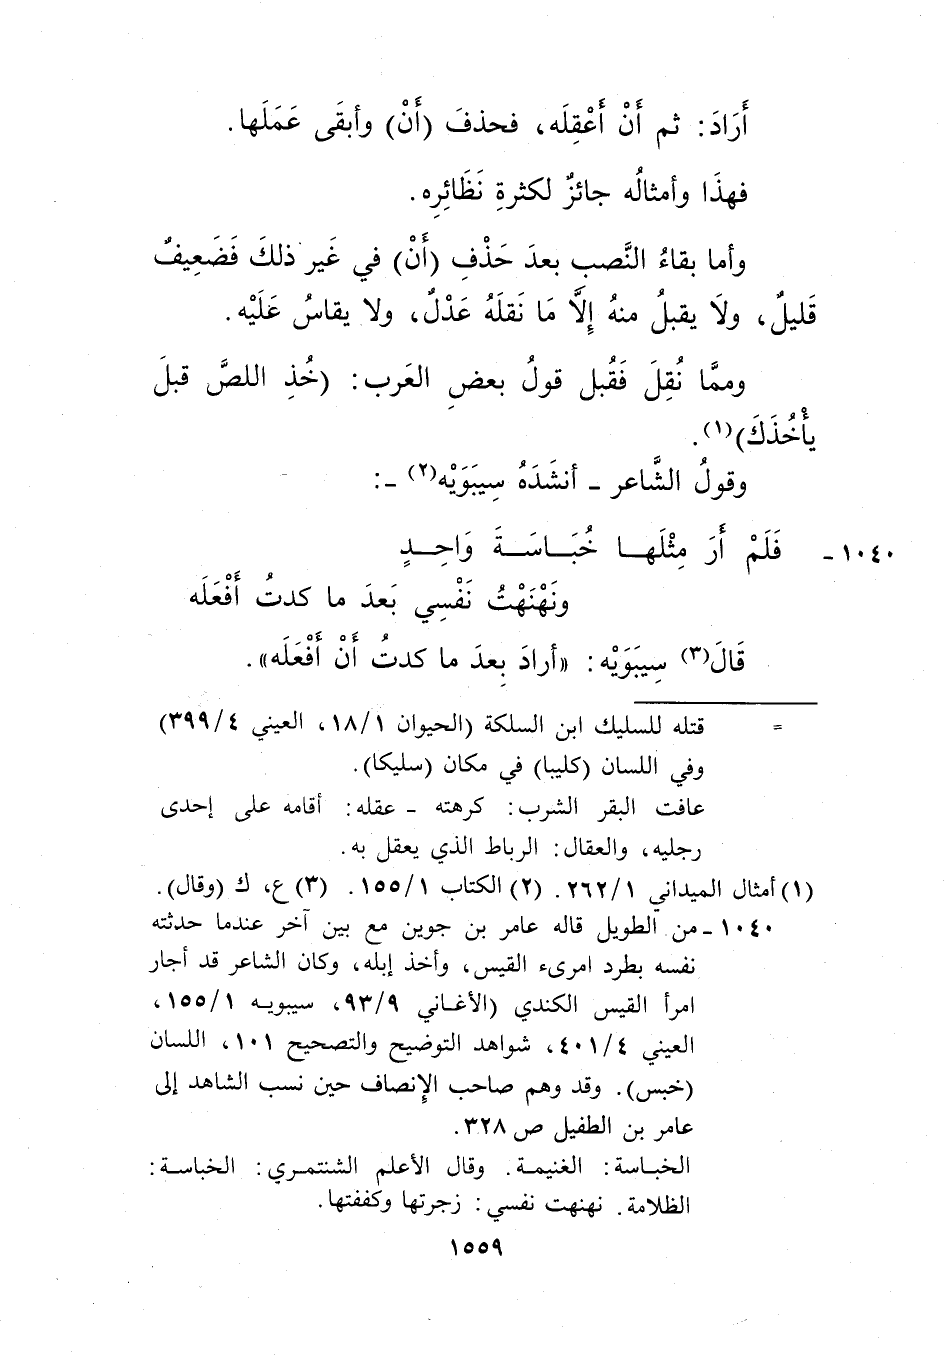 أَرَادَ: ثم أَنْ أَعْقِلَه، فحذفَ (أَنْ) وأبقَى عَمَلَها.
فهذَا وأمثالُه جائزٌ لكثرةِ نَظَائِرِه.
وأما بقاءُ النَّصبِ بعدَ حَذْفِ (أَنْ) في غَير ذلكَ فَضَعِيفٌ
قَليلٌ، ولَا يقبلُ منهُ إِلَّا مَا نَقلَهُ عَدْلٌ، ولا يقاسُ عَلَيْه.
وممَّا نُقِلَ فَقُبل قولُ بعضِ العَرب: (خُذِ اللصَّ قبلَ
يأْخُذَكَ)(١).
وقولُ الشَّاعر ـ أنشَدَهُ سِيبَوَيْه(٢) ـ:
١٠٤٠ ـ فَلَمْ أَرَ مِثْلَهـا خُبَـاسَـةَ وَاحِـدٍ
ونَهْنَهْتُ نَفْسِي بَعدَ ما كدتُ أَفْعَلَه
قَالَ(٣) سِيبَوَيْه: «أرادَ بعدَ ما كدتُ أَنْ أَفْعَلَه».
= قتله للسليك ابن السلكة (الحيوان ١/١٨، العيني ٤/٣٩٩)
وفي اللسان (كليبا) في مكان (سليكا).
عافت البقر الشرب: كرهته ـ عقله: أقامه على إحدى
رجليه، والعقال: الرباط الذي يعقل به.
(١) أمثال الميداني ١/٢٦٢. (٢) الكتاب ١/١٥٥. (٣) ع، ك (وقال).
١٠٤٠ ـ من الطويل قاله عامر بن جوين مع بين آخر عندما حدثته
نفسه بطرد امرىء القيس، وأخذ إبله، وكان الشاعر قد أجار
امرأ القيس الكندي (الأغـاني ٩/٩٣، سيبويـه ١/١٥٥،
العيني ٤/٤٠١، شواهد التوضيح والتصحيح ١٠١، اللسان
(خبس). وقد وهم صاحب الإنصاف حين نسب الشاهد إلى
عامر بن الطفيل ص ٣٢٨.
الخبـاسة: الغنيمة. وقال الأعلم الشنتمـري: الخباسـة:
الظلامة. نهنهت نفسي: زجرتها وكففتها.
١٥٥٩